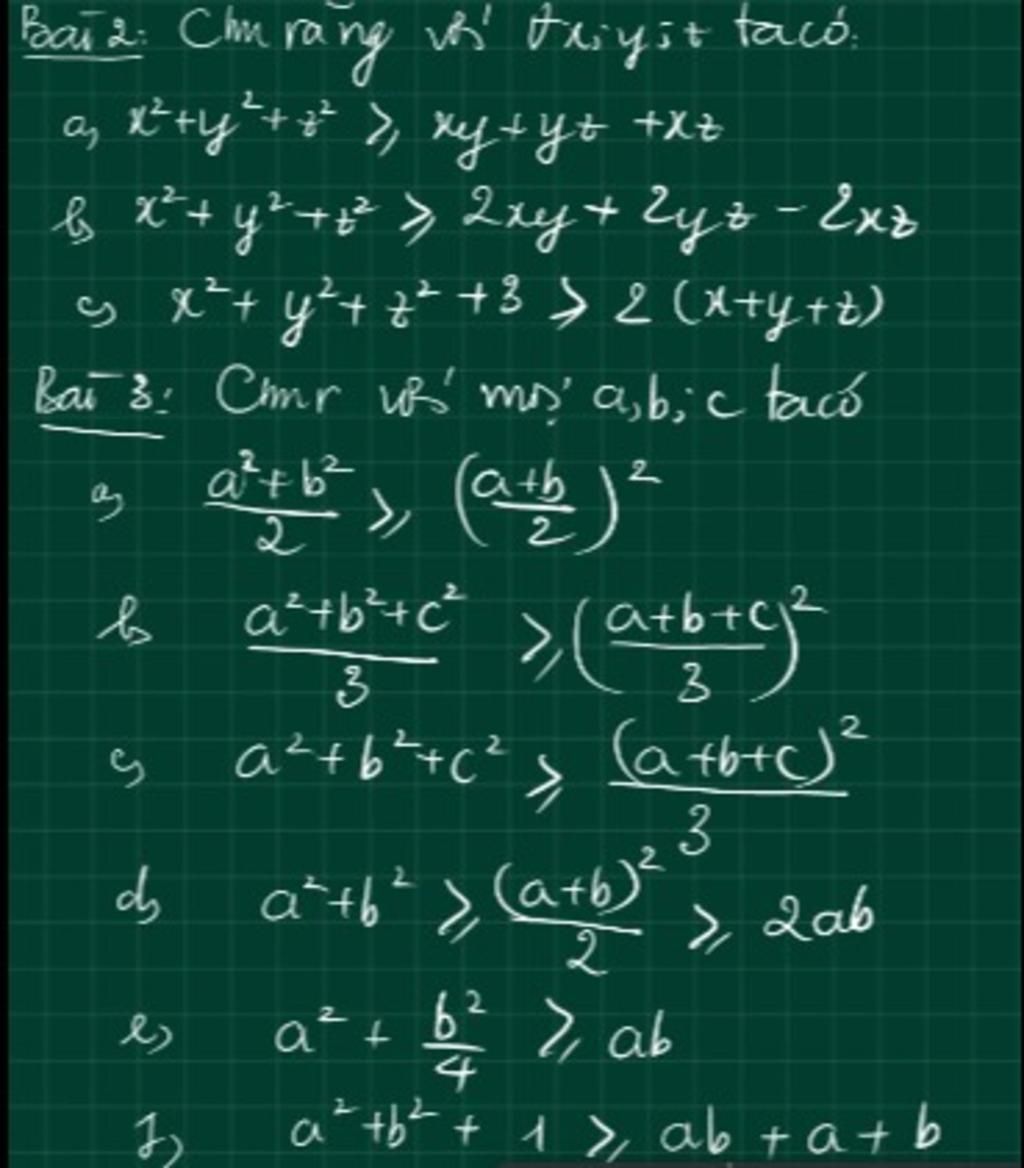 Bài 2: Cm rằng với ∀x;y;z ta có:
a, x²+y²+z² ≥ xy+yz+xz
b, x²+y²+z² ≥ 2xy+2yz-2xz
c, x²+y²+z²+3 ≥ 2(x+y+z)
Bài 3: Cmr với mọi a,b,c ta có
a, (a²+b²)/2 ≥ ((a+b)/2)²
b, (a²+b²+c²)/3 ≥ ((a+b+c)/3)²
c, a²+b²+c² ≥ (a+b+c)²/3
d, a²+b² ≥ (a+b)²/2 ≥ 2ab
e, a²+b²/4 ≥ ab
f, a²+b²+1 ≥ ab+a+b